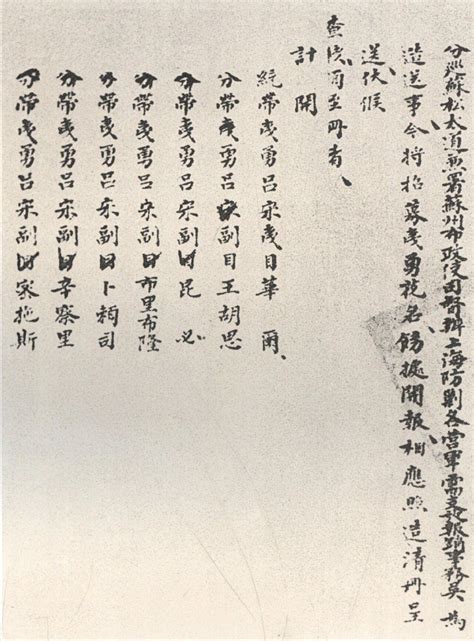 分巡蘇松太道兼署蘇州布政使司督辦上海防剿各營軍需支應報銷事務吳 為
造送事今將招募夷勇名據開報相應照造清冊呈
送伏候
查核須至冊者
計開
統帶夷勇呂宋夷目華爾
分帶夷勇呂宋副目王胡思
分帶夷勇呂宋副目昆必
分帶夷勇呂宋副目布里布隆
分帶夷勇呂宋副目卜賴司
分帶夷勇呂宋副目辛察里
分帶夷勇呂宋副目拖斯